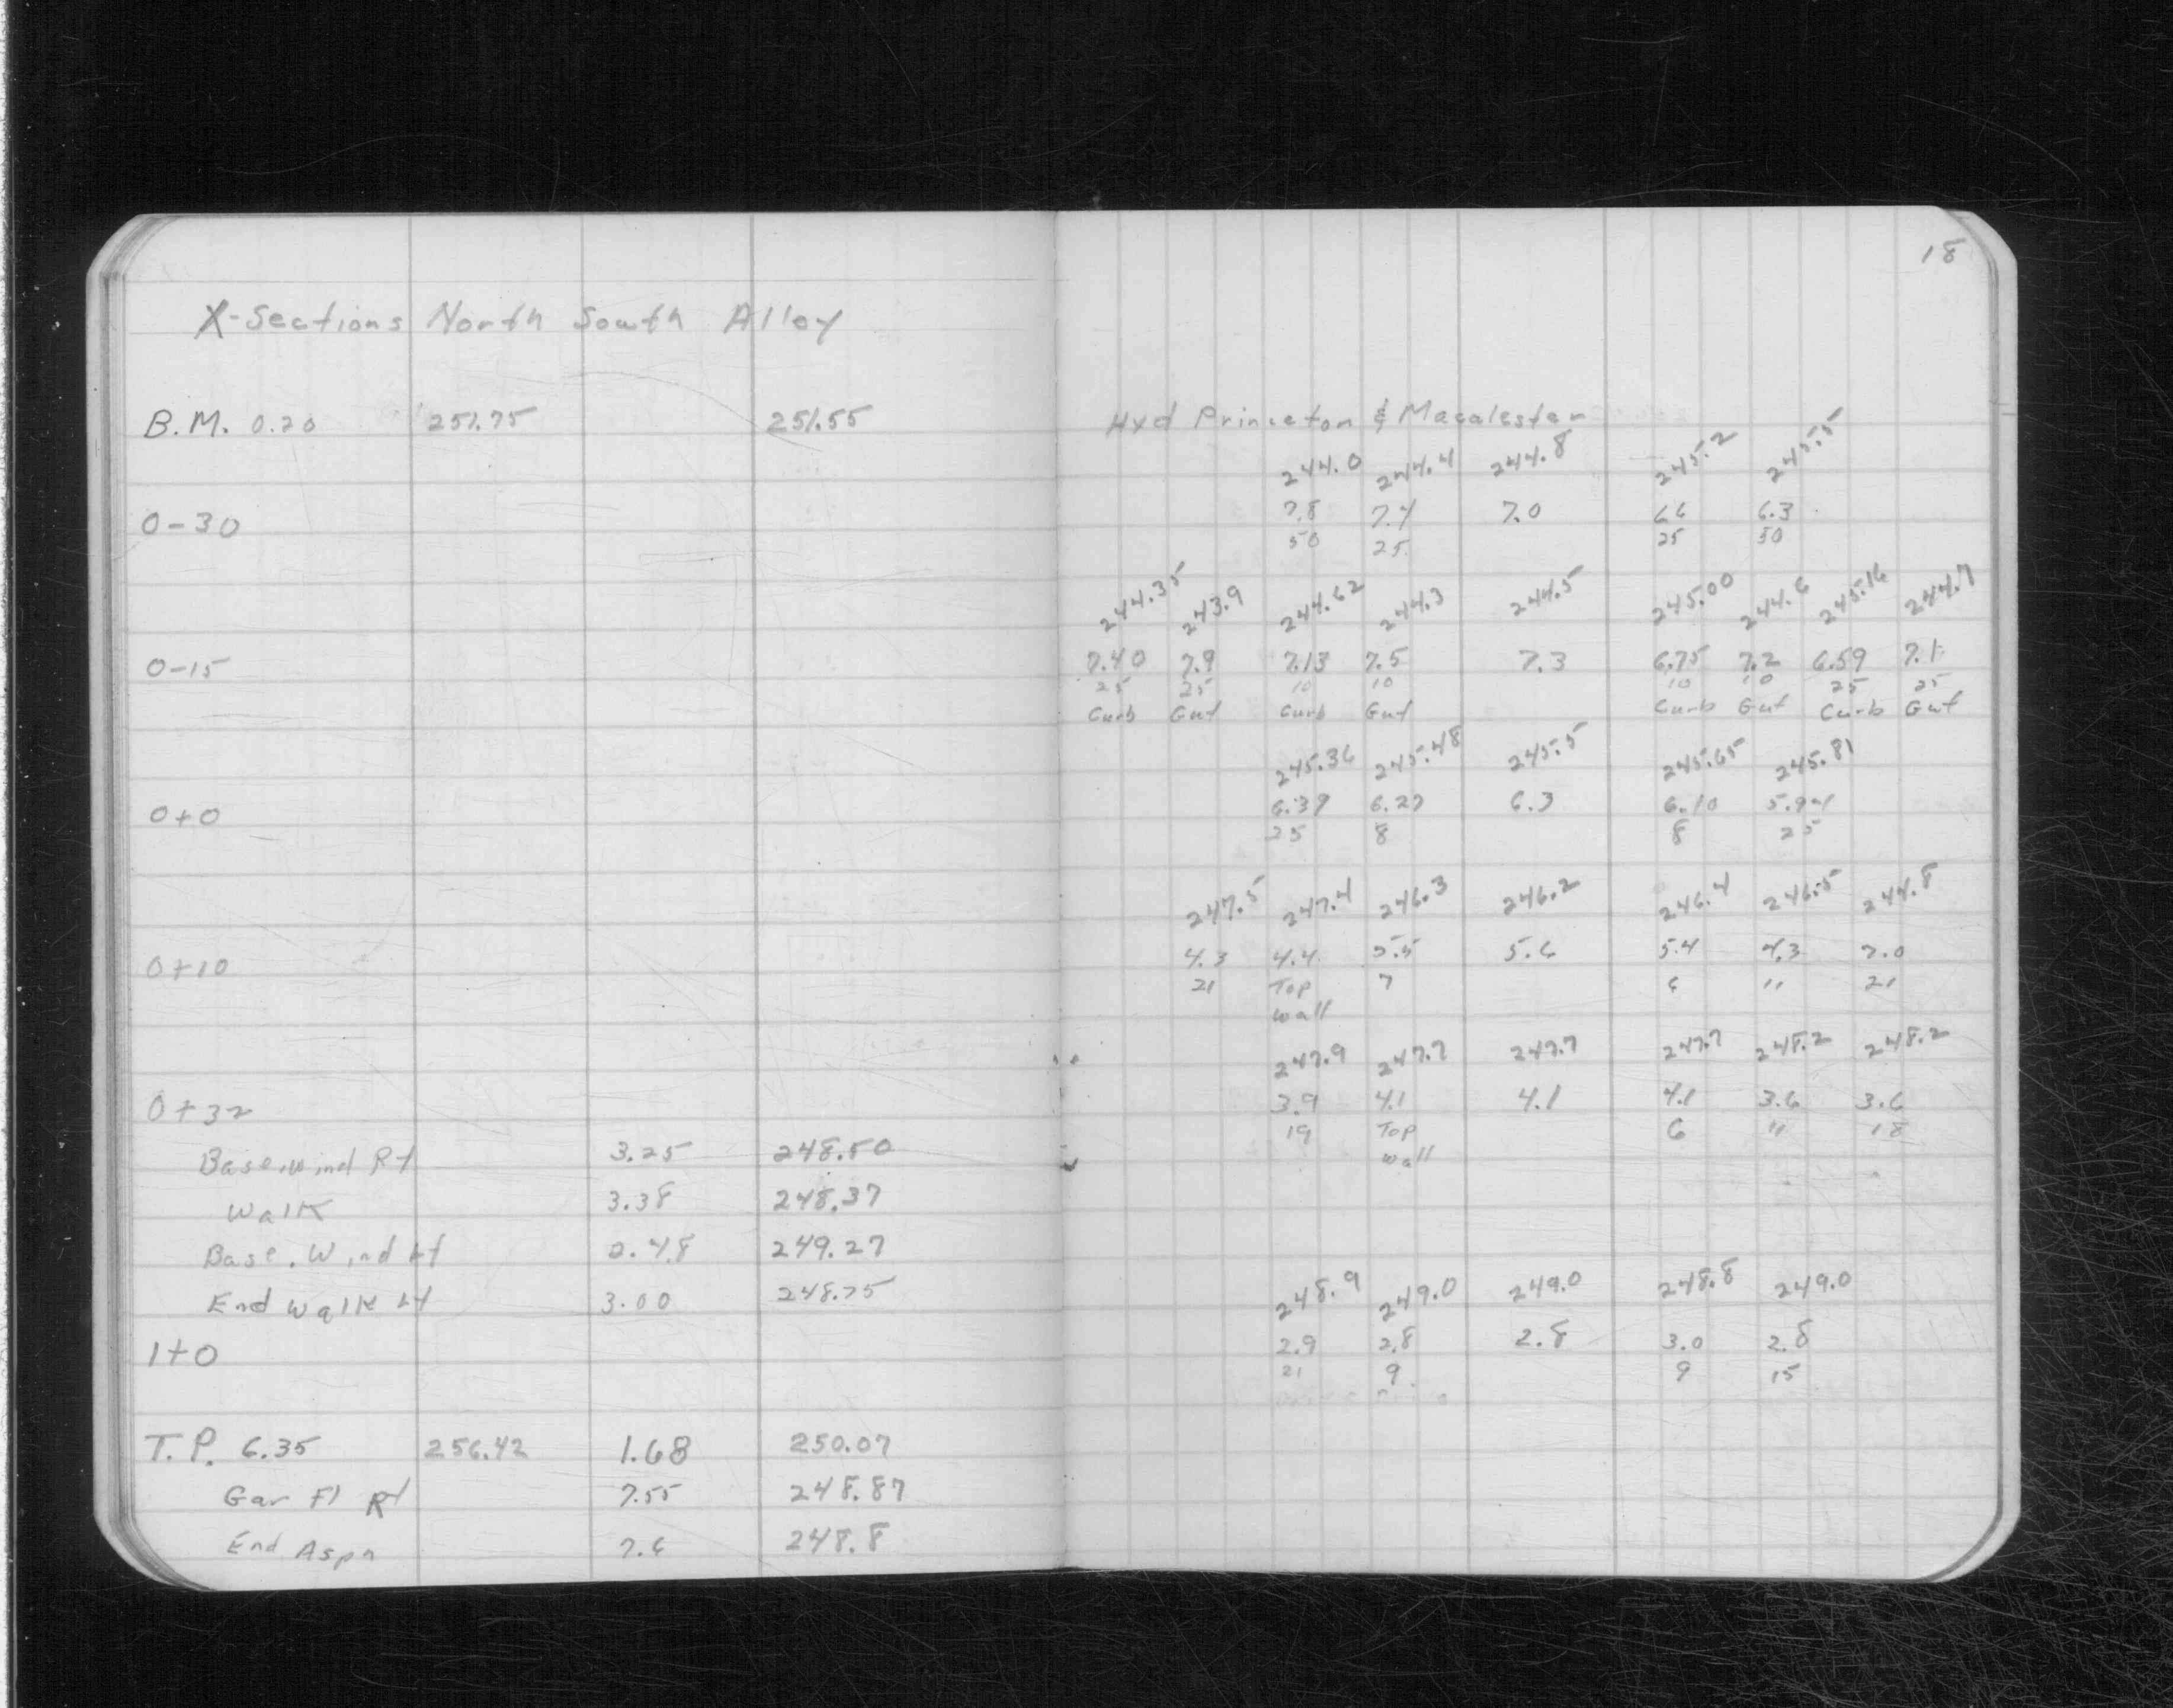 18
X-Sections North South Alley
B.M. 0.20 251.75 251.55 Hyd Princeton & Macalester
244.0 244.4 244.8 245.2 245.5
0-30 7.8 7.4 7.0 6.6 6.3
50 25 25 50
244.35 243.9 244.62 244.3 244.5 245.00 244.6 245.16 244.7
0-15 7.40 7.9 7.13 7.5 7.3 6.75 7.2 6.59 7.1
25 25 10 10 10 10 25 25
Curb Gut Curb Gut Curb Gut Curb Gut
245.36 245.48 245.5 245.65 245.81
0+0 6.39 6.27 6.3 6.10 5.94
25 8 8 25
247.5 247.4 246.3 246.2 246.4 246.5 244.8
0+10 4.3 4.4 5.5 5.6 5.4 7.0
21 Top 7 6 " 21
Wall
247.9 247.7 247.7 247.7 248.2 248.2
0+32 3.9 4.1 4.1 4.1 3.6 3.6
19 Top 6 " 18
Wall
Base.Wind Rt 3.25 248.50
Walk 3.38 248.37
Base.Wind Lt 2.48 249.27
End Walk Lt 3.00 248.75
248.9 249.0 249.0 248.8 249.0
1+0 2.9 2.8 2.8 3.0 2.8
21 9 9 15
T.P. 6.35 256.42 1.68 250.07
Gar Fl Rt 7.55 248.87
End Aspn 7.6 248.8